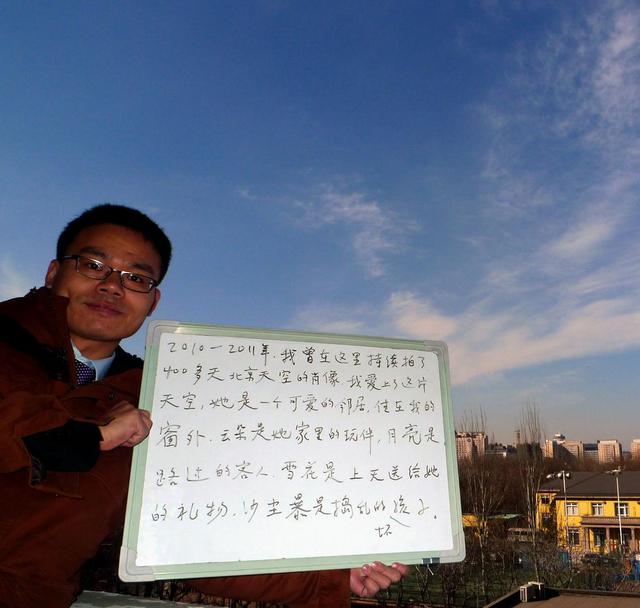 2010—2011年,我曾在这里持续拍了
400多天北京天空的肖像.我爱上了这片
天空,她是一个可爱的邻居,住在我的
窗外.云朵是她家里的玩伴,月亮是
路过的客人.雪花是上天送给她
的礼物.沙尘暴是捣乱的坏孩子.